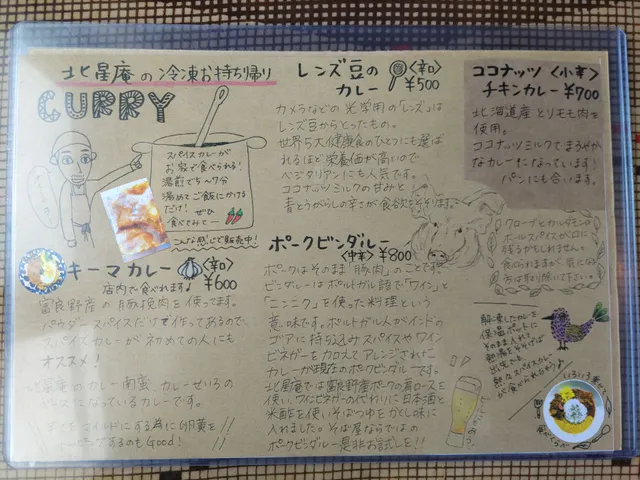 北星庵の冷凍お持ち帰り
CURRY
スパイスカレーが
お家で食べられる!
湯煎で5〜7分
温めてご飯にかける
だけ! ぜひ
食べてみてー
こんな感じで販売中!
キーマカレー 〈辛口〉
¥600
店内で食べれます♪
富良野産の豚挽肉を使ってます。
パウダースパイスだけで作ってあるので、
スパイスカレーが初めての人にも
オススメ!
北星庵のカレー南蛮、カレーせいろの
ベースになっているカレーです。
辛さをマイルドにする為に卵黄を
トッピングするのもGood!
レンズ豆の
カレー 〈辛口〉
¥500
カメラなどの光学用の「レンズ」は
レンズ豆からとったもの。
世界5大健康食のひとつにも選ば
れるほど栄養価が高いので
ベジタリアンにも人気です。
ココナッツミルクの甘みと
青とうがらしの辛さが食欲をそそります。
ポークビンダルー
〈中辛〉 ¥800
ポークはそのまま「豚肉」のことです。
ビンダルーはポルトガル語で「ワイン」と
「ニンニク」を使った料理という
意味です。ポルトガル人がインドの
ゴアに持ち込みスパイスやワイン
ビネガーを加えてアレンジされた
カレーが現在のポークビンダルーです。
北星庵では富良野産ポークの肩ロースを
使い、ワインビネガーの代わりに日本酒と
米酢を使い、そばつゆをかくし味に
入れました。そば屋ならではの
ポークビンダルー是非お試しを!!
ココナッツ 〈小辛〉
チキンカレー ¥700
北海道産とりモモ肉を
使用。
ココナッツミルクでまろやか
なカレーになっています!
パンにも合います。
クローブとカルダモンは
ホールスパイスがお口に
残るかもしれません。
食べられますが気になる
方は取り除いて下さい。
解凍したカレーを
保温ポットに
そのまま入れて
熱湯をそそげば
出先でも
熱々スパイスカレー
が食べられちゃう♪
いろいろ乗せて